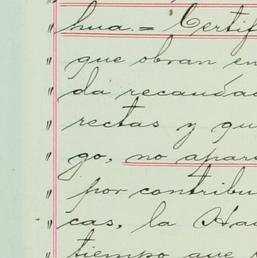 hua.= Certif
que obran en
da recauda
rectas y qu
go, no apar
por contribu
cas, la Ha
tiempo que